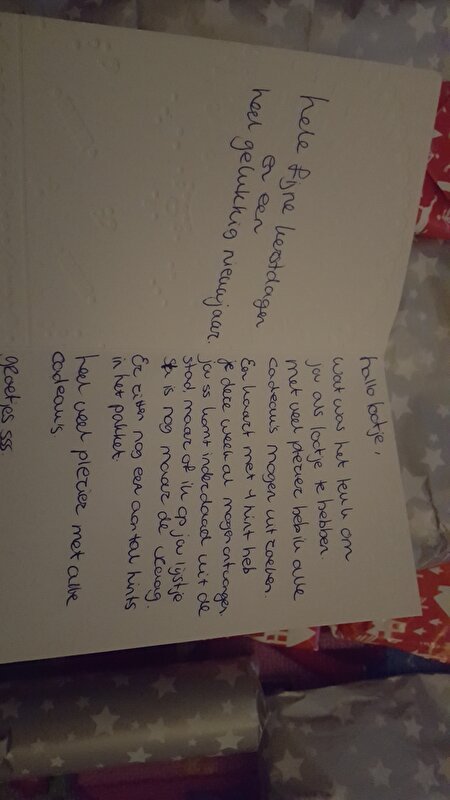 hele fijne kerstdagen
en een
heel gelukkig nieuwjaar.
hallo lootje,
wat was het leuk om
jou als lootje te hebben.
met veel plezier heb ik alle
cadeau's mogen uitzoeken.
Een kaart met 1 hint heb
je deze week al mogen ontvangen.
jou ss komt inderdaad uit de
stad, maar of ik op jou lijstje
is nog maar de vraag.
Er zitten nog een aantal hints
in het pakket.
heel veel plezier met alle
cadeau's
groetjes sss